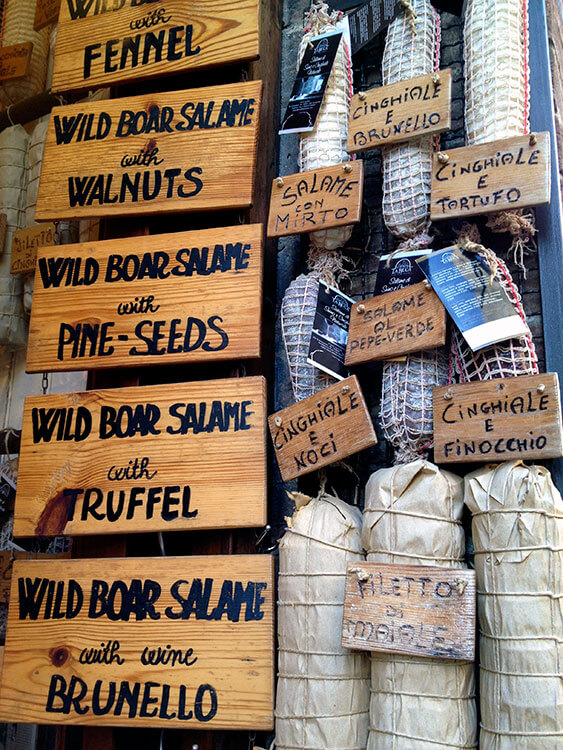 WILD BOAR SALAME
with
FENNEL
WILD BOAR SALAME
with
WALNUTS
WILD BOAR SALAME
with
PINE-SEEDS
WILD BOAR SALAME
with
TRUFFEL
WILD BOAR SALAME
with wine
BRUNELLO
CINGHIALE
E
BRUNELLO
SALAME
CON
MIRTO
CINGHIALE
E
TARTUFO
SALAME
AL
PEPE-VERDE
CINGHIALE
E
NOCI
CINGHIALE
E
FINOCCHIO
FILETTO
DI
MAIALE